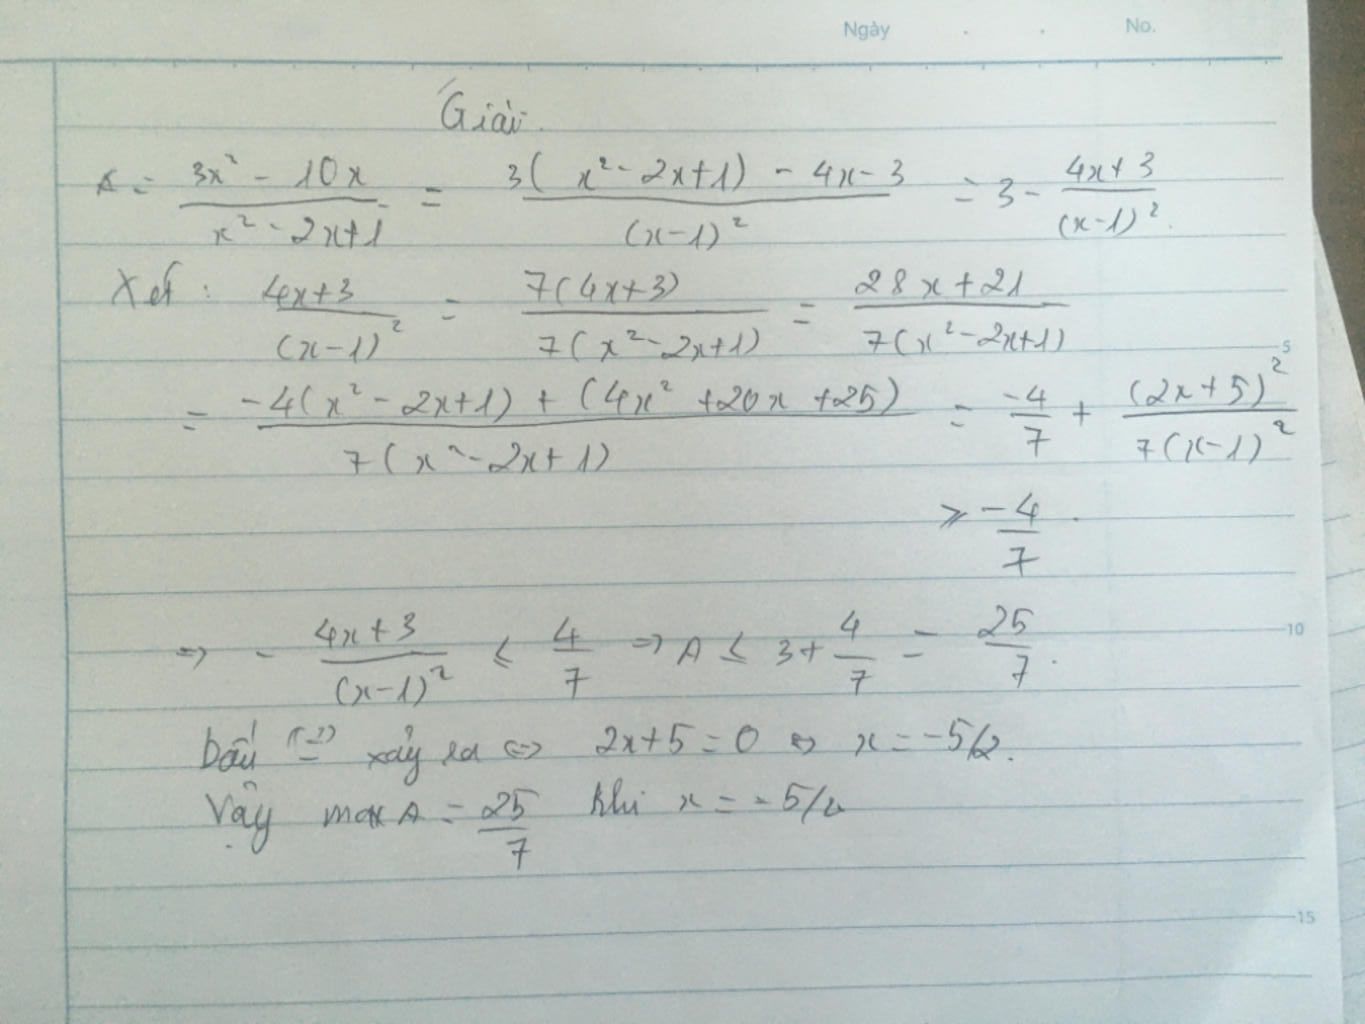 Ngày . . No.
Giải.
A = \frac{3x² - 10x}{x² - 2x+1} = \frac{3( x² - 2x+1) - 4x - 3}{(x-1)²} = 3 - \frac{4x+3}{(x-1)²}.
Xét : \frac{4x+3}{(x-1)²} = \frac{7(4x+3)}{7(x²-2x+1)} = \frac{28x+21}{7(x²-2x+1)}
5
= \frac{-4(x² - 2x+1) + (4x² +20x +25)}{7(x²-2x+1)} = \frac{-4}{7} + \frac{(2x+5)²}{7(x-1)²}
⩾ \frac{-4}{7}.
⇒ - \frac{4x+3}{(x-1)²} ≤ \frac{4}{7} ⇒ A ≤ 3+ \frac{4}{7} = \frac{25}{7}.
10
Dấu "=" xảy ra ⇔ 2x+5 = 0 ⇔ x = -5/2.
Vậy max A = \frac{25}{7} khi x = -5/2
15